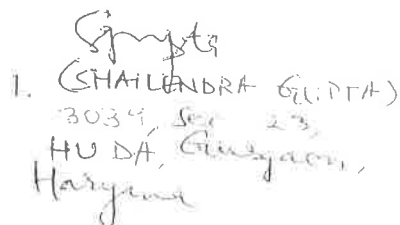 Sgupta
1. (SHAILENDRA GUPTA)
3034, Sec 23,
HUDA, Gurgaon,
Haryana